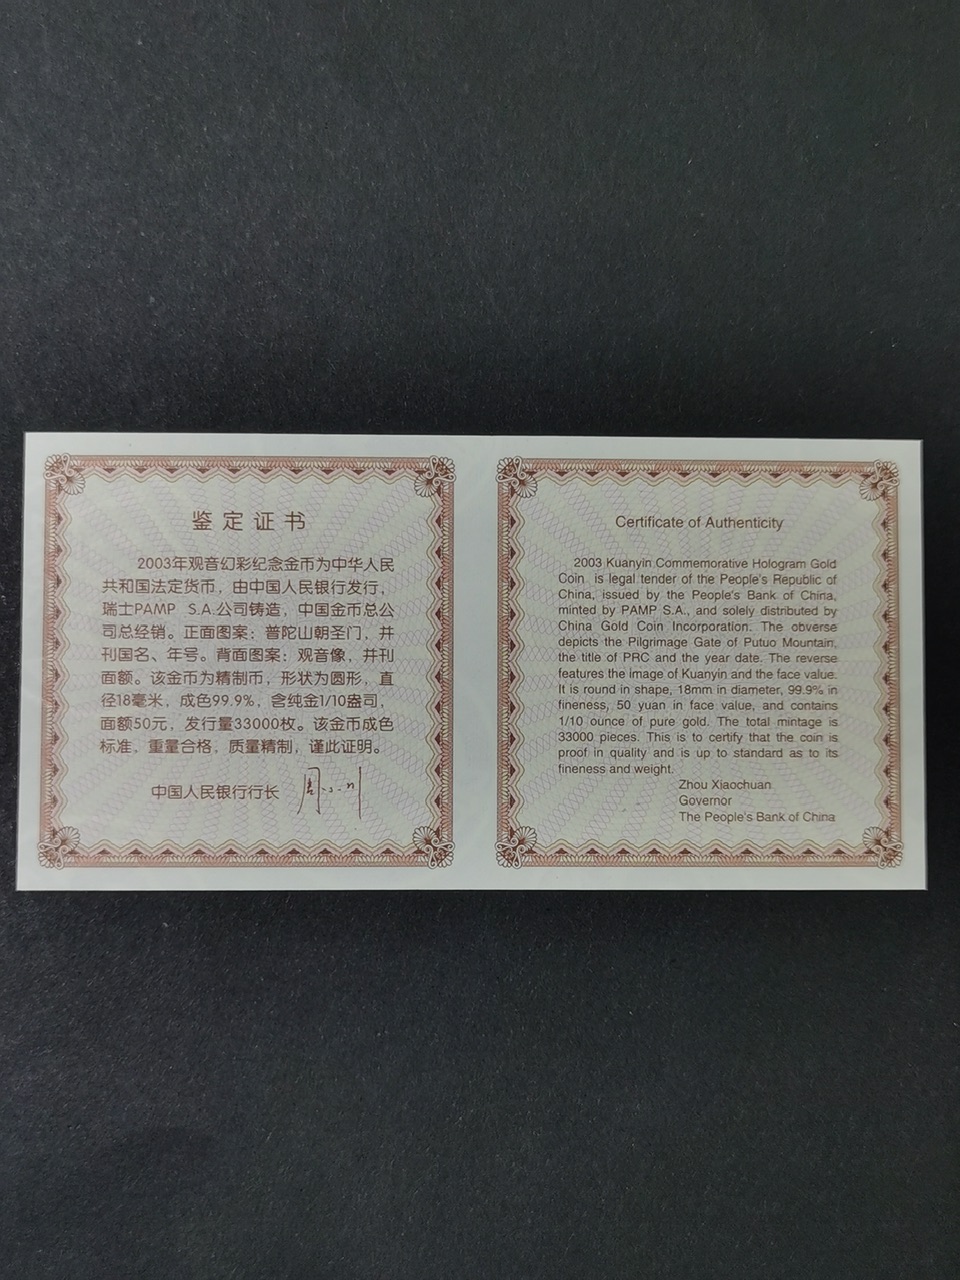 鉴定证书
2003年观音幻彩纪念金币为中华人民
共和国法定货币，由中国人民银行发行，
瑞士PAMP S.A.公司铸造，中国金币总公
司总经销。正面图案：普陀山朝圣门，并
刊国名、年号。背面图案：观音像，并刊
面额。该金币为精制币，形状为圆形，直
径18毫米，成色99.9%，含纯金1/10盎司，
面额50元，发行量33000枚。该金币成色
标准，重量合格，质量精制，谨此证明。
中国人民银行行长
Certificate of Authenticity
2003 Kuanyin Commemorative Hologram Gold
Coin is legal tender of the People's Republic of
China, issued by the People's Bank of China,
minted by PAMP S.A., and solely distributed by
China Gold Coin Incorporation. The obverse
depicts the Pilgrimage Gate of Putuo Mountain,
the title of PRC and the year date. The reverse
features the image of Kuanyin and the face value.
It is round in shape, 18mm in diameter, 99.9% in
fineness, 50 yuan in face value, and contains
1/10 ounce of pure gold. The total mintage is
33000 pieces. This is to certify that the coin is
proof in quality and is up to standard as to its
fineness and weight.
Zhou Xiaochuan
Governor
The People's Bank of China